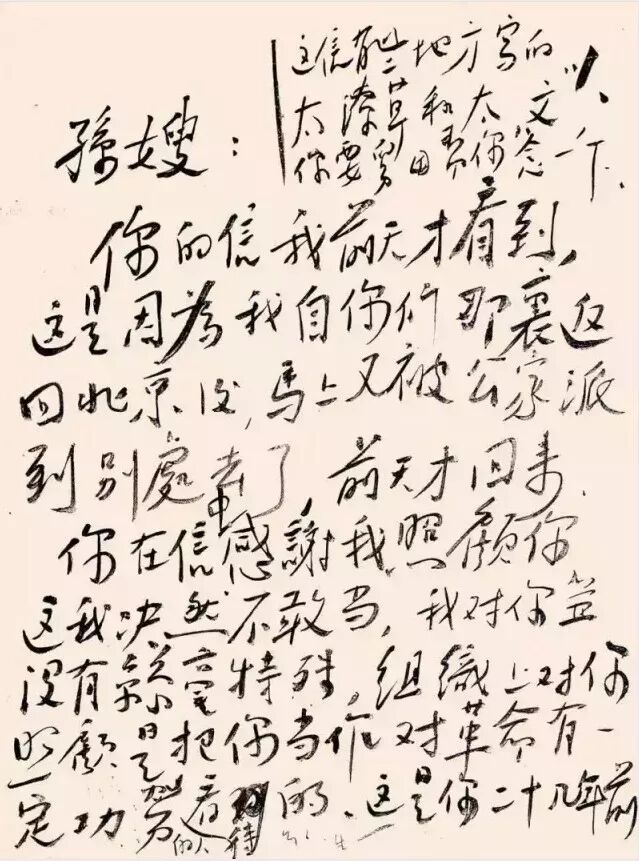 这信有些地方写的
太潦草和太文
你要帮你念一下．
孫嫂：
你的信我前天才看到，
这是因為我自你们那裏返
回北京后，馬上又被公家派
到别處去了，前天才回来．
你在信中感謝我照顧你
这我决然不敢当，我对你並
没有絲毫特殊，组織上对你
照顧是把你当作对革命有一
定功劳的人看待的、这是你二十几年前